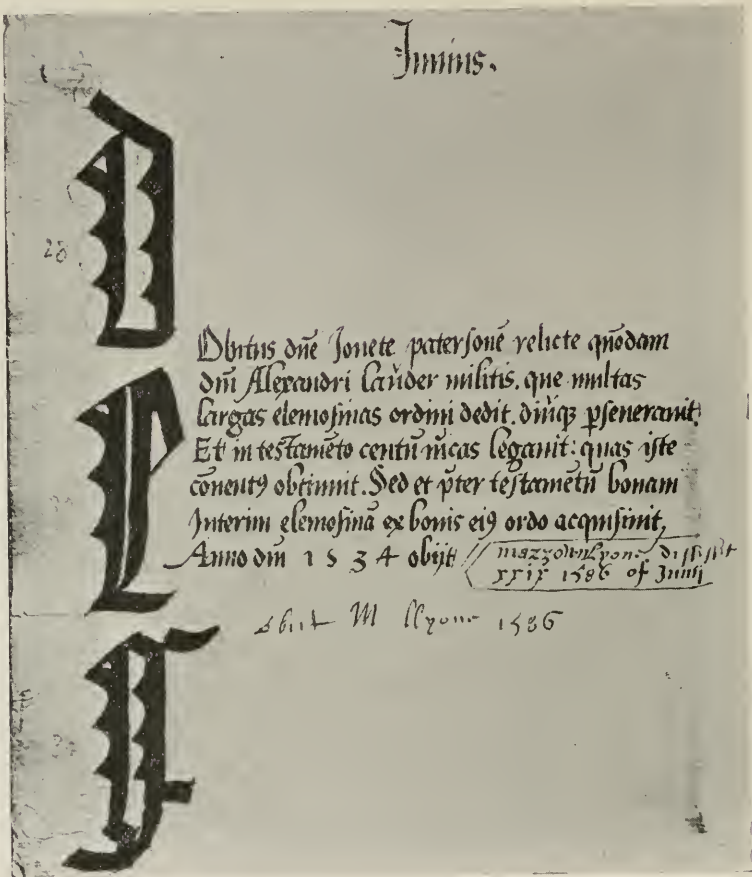 Junius.
D
28
Obitus dn̄e Jonete patersonē relicte qn̄odam
dn̄i Alexandri lau̇der militis. que multas
largas elemosinas ordini dedit. diuq₃ pseuerauit
Et in testamēto centū m̄cas legauit: quas iste
cōuentꝰ obtinuit. Sed et p̄ter testamētū bonam
Interim elemosinā ex bonis eiꝰ ordo acquisiuit,
Anno dn̄i 1534 obijt // mazyown lyone dissisit
XXIX 1586 of Junij
E
obiit M llyone 1586
F
29